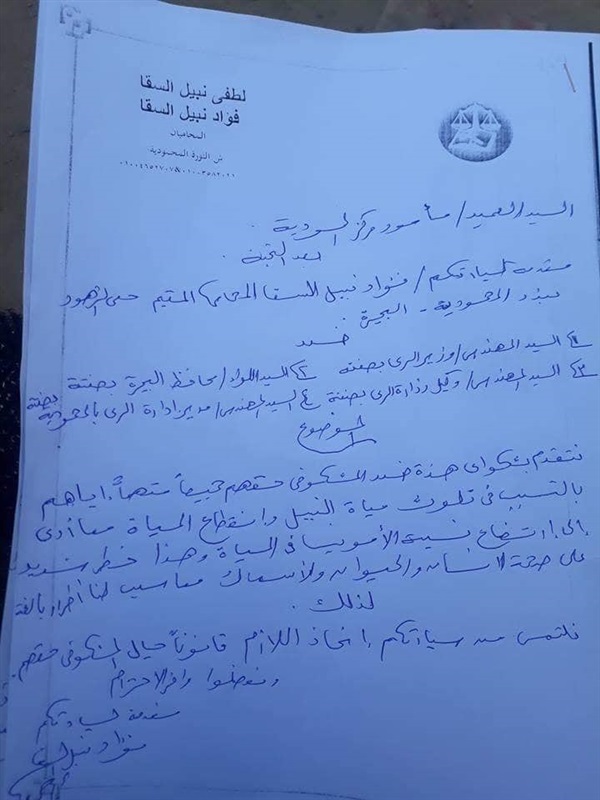 لطفى نبيل السقا
فؤاد نبيل السقا
المحاميان
ش الثورة المحمودية
السيد العميد / مأمور مركز المحمودية
بعد التحية
مقدمه لسيادتكم / فؤاد نبيل السقا المحامى المقيم حى الزهور
بندر المحمودية - البحيرة
ضد
١) السيد المهندس / وزير الرى بصفته ٢) السيد اللواء / محافظ البحيرة بصفته
٣) السيد المهندس / وكيل وزارة الرى بصفته ٤) السيد المهندس / مدير ادارة الرى بالمحمودية بصفته
الموضوع
نتقدم بشكواى هذة ضد المشكو فى حقهم جميعاً متهماً اياهم
بالتسبب فى تلوث مياة النيل وانقطاع المياة مما أدى
إلى ارتفاع نسبة الأمونيا فى المياة وهذا خطر شديد
على صحة الانسان والحيوان والأسماك مما سبب لنا أضرار بالغة
لذلك
نلتمس من سيادتكم اتخاذ اللازم قانوناً حيال المشكو فى حقهم
وتفضلوا وافر الاحترام
مقدمة لسيادتكم
فؤاد نبيل السقا